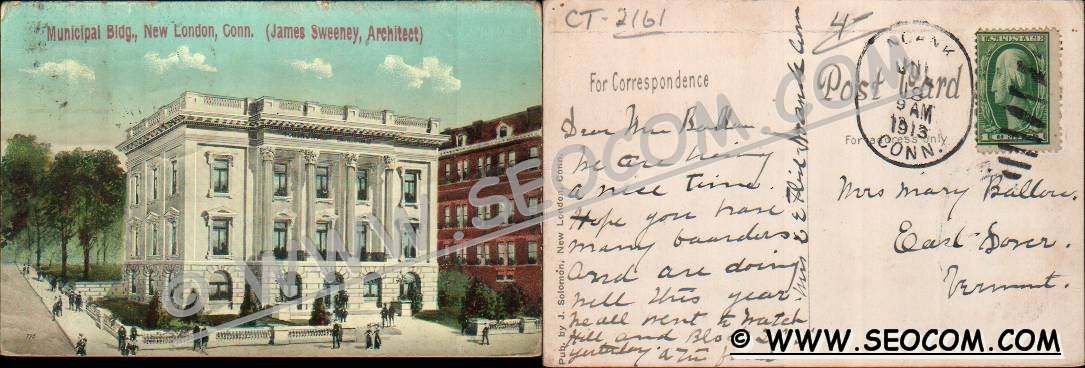 Municipal Bldg., New London, Conn. (James Sweeney, Architect)
© WWW.SEOCOM.COM
CT-2161
4-
For Correspondence
Post Card
For address only
NOANK
JUN
9 AM
1913
CONN.
U.S. POSTAGE
Dear Mrs Ballou
We are having
a nice time.
Hope you have
many boarders
and are doing
well this year.
We all went to Watch
Hill and Block I
yesterday
Mrs Mary Ballou.
East Dover.
Vermont.
Pub. by J. Solomon, New London, Conn.
© WWW.SEOCOM.COM